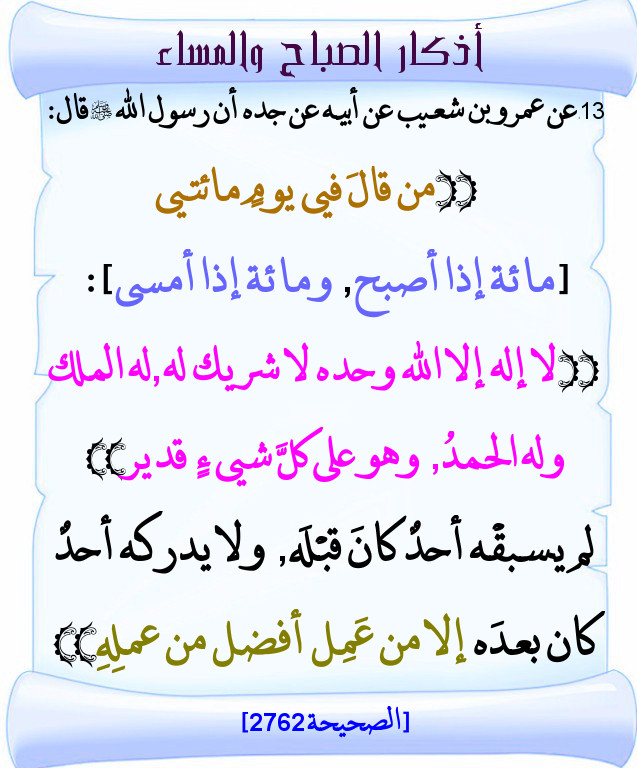 أذكار الصباح والمساء
13.عن عمرو بن شعيب عن أبيه عن جده أن رسول الله ﷺ قال:
((من قالَ فيي يومٍ مائتيي
[مائة إذا أصبح, ومائة إذا أمسى]:
((لا إله إلا الله وحده لا شريك له, له الملك
وله الحمدُ, وهو على كلَّ شييءٍ قدير))
لم يسبقْه أحدٌ كانَ قبْلَه, ولا يدركه أحدٌ
كان بعدَه إلا من عَمِل أفضل من عملِهِ))
[الصحيحة2762]